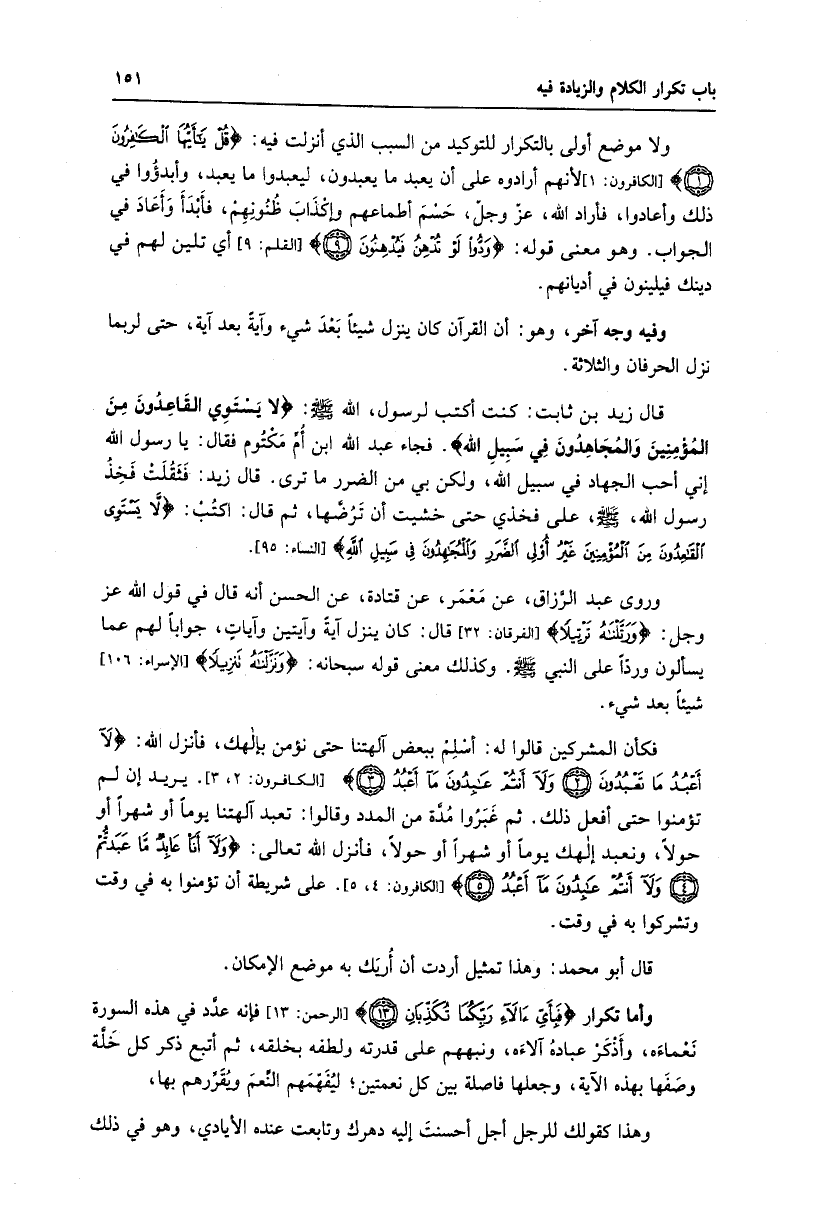 باب تكرار الكلام والزيادة فيه ١٥١
ولا موضع أولى بالتكرار للتوكيد من السبب الذي أنزلت فيه: ﴿قُلْ يَٰٓأَيُّهَا ٱلْكَٰفِرُونَ
﴿١﴾﴾ [الكافرون: ١] لأنهم أرادوه على أن يعبد ما يعبدون، ليعبدوا ما يعبد، وأبدؤُوا في
ذلك وأعادوا، فأراد الله، عزّ وجلّ، حَسْمَ أطماعهم وإكْذَابَ ظُنُونِهِمْ، فأَبْدَأَ وَأَعَادَ في
الجواب. وهو معنى قوله: ﴿وَدُّوا۟ لَوْ تُدْهِنُ فَيُدْهِنُونَ ﴿٩﴾﴾ [القلم: ٩] أي تلين لهم في
دينك فيلينون في أديانهم.
وفيه وجه آخر، وهو: أن القرآن كان ينزل شيئاً بَعْدَ شيء وآيةً بعد آية، حتى لربما
نزل الحرفان والثلاثة.
قال زيد بن ثابت: كنت أكتب لرسول، الله ﷺ: ﴿لا يَسْتَوِي القَاعِدُونَ مِنَ
المُؤْمِنِينَ وَالمُجَاهِدُونَ فِي سَبِيلِ الله﴾. فجاء عبد الله ابن أُمِّ مَكْتُوم فقال: يا رسول الله
إني أحب الجهاد في سبيل الله، ولكن بي من الضرر ما ترى. قال زيد: فَثَقُلَتْ فَخِذُ
رسول الله، ﷺ، على فخذي حتى خشيت أن تَرُضَّها، ثم قال: اكتُبْ: ﴿لَّا يَسْتَوِى
ٱلْقَٰعِدُونَ مِنَ ٱلْمُؤْمِنِينَ غَيْرُ أُو۟لِى ٱلضَّرَرِ وَٱلْمُجَٰهِدُونَ فِى سَبِيلِ ٱللَّهِ﴾ [النساء: ٩٥].
وروى عبد الرَّزاق، عن مَعْمَر، عن قتادة، عن الحسن أنه قال في قول الله عز
وجل: ﴿وَرَتَّلْنَٰهُ تَرْتِيلًا﴾ [الفرقان: ٣٢] قال: كان ينزل آيةً وآيتين وآياتٍ، جواباً لهم عما
يسألون وردّاً على النبي ﷺ. وكذلك معنى قوله سبحانه: ﴿وَنَزَّلْنَٰهُ تَنزِيلًا﴾ [الإسراء: ١٠٦]
شيئاً بعد شيء.
فكأن المشركين قالوا له: أسْلِمْ ببعض آلهتنا حتى نؤمن بإلٰهك، فأنزل الله: ﴿لَآ
أَعْبُدُ مَا تَعْبُدُونَ ﴿٢﴾ وَلَآ أَنتُمْ عَٰبِدُونَ مَآ أَعْبُدُ ﴿٣﴾﴾ [الكافرون: ٢، ٣]. يريد إن لم
تؤمنوا حتى أفعل ذلك. ثم غَبَرُوا مُدَّة من المدد وقالوا: تعبد آلهتنا يوماً أو شهراً أو
حولاً، ونعبد إلٰهك يوماً أو شهراً أو حولاً، فأنزل الله تعالى: ﴿وَلَآ أَنَا۠ عَابِدٌ مَّا عَبَدتُّمْ
﴿٤﴾ وَلَآ أَنتُمْ عَٰبِدُونَ مَآ أَعْبُدُ ﴿٥﴾﴾ [الكافرون: ٤، ٥]. على شريطة أن تؤمنوا به في وقت
وتشركوا به في وقت.
قال أبو محمد: وهذا تمثيل أردت أن أُريَك به موضع الإمكان.
وأما تكرار ﴿فَبِأَىِّ ءَالَآءِ رَبِّكُمَا تُكَذِّبَانِ ﴿١٣﴾﴾ [الرحمن: ١٣] فإنه عدَّد في هذه السورة
نَعْماءَه، وأَذْكَرْ عبادهُ آلاءَه، ونبههم على قدرته ولطفه بخلقه، ثم أتبع ذكر كل خَلَّة
وصَفَها بهذه الآية، وجعلها فاصلة بين كل نعمتين؛ ليُفْهِمَهم النِّعمَ ويُقَرِّرهم بها،
وهذا كقولك للرجل أجل أحسنتَ إليه دهرك وتابعت عنده الأيادي، وهو في ذلك